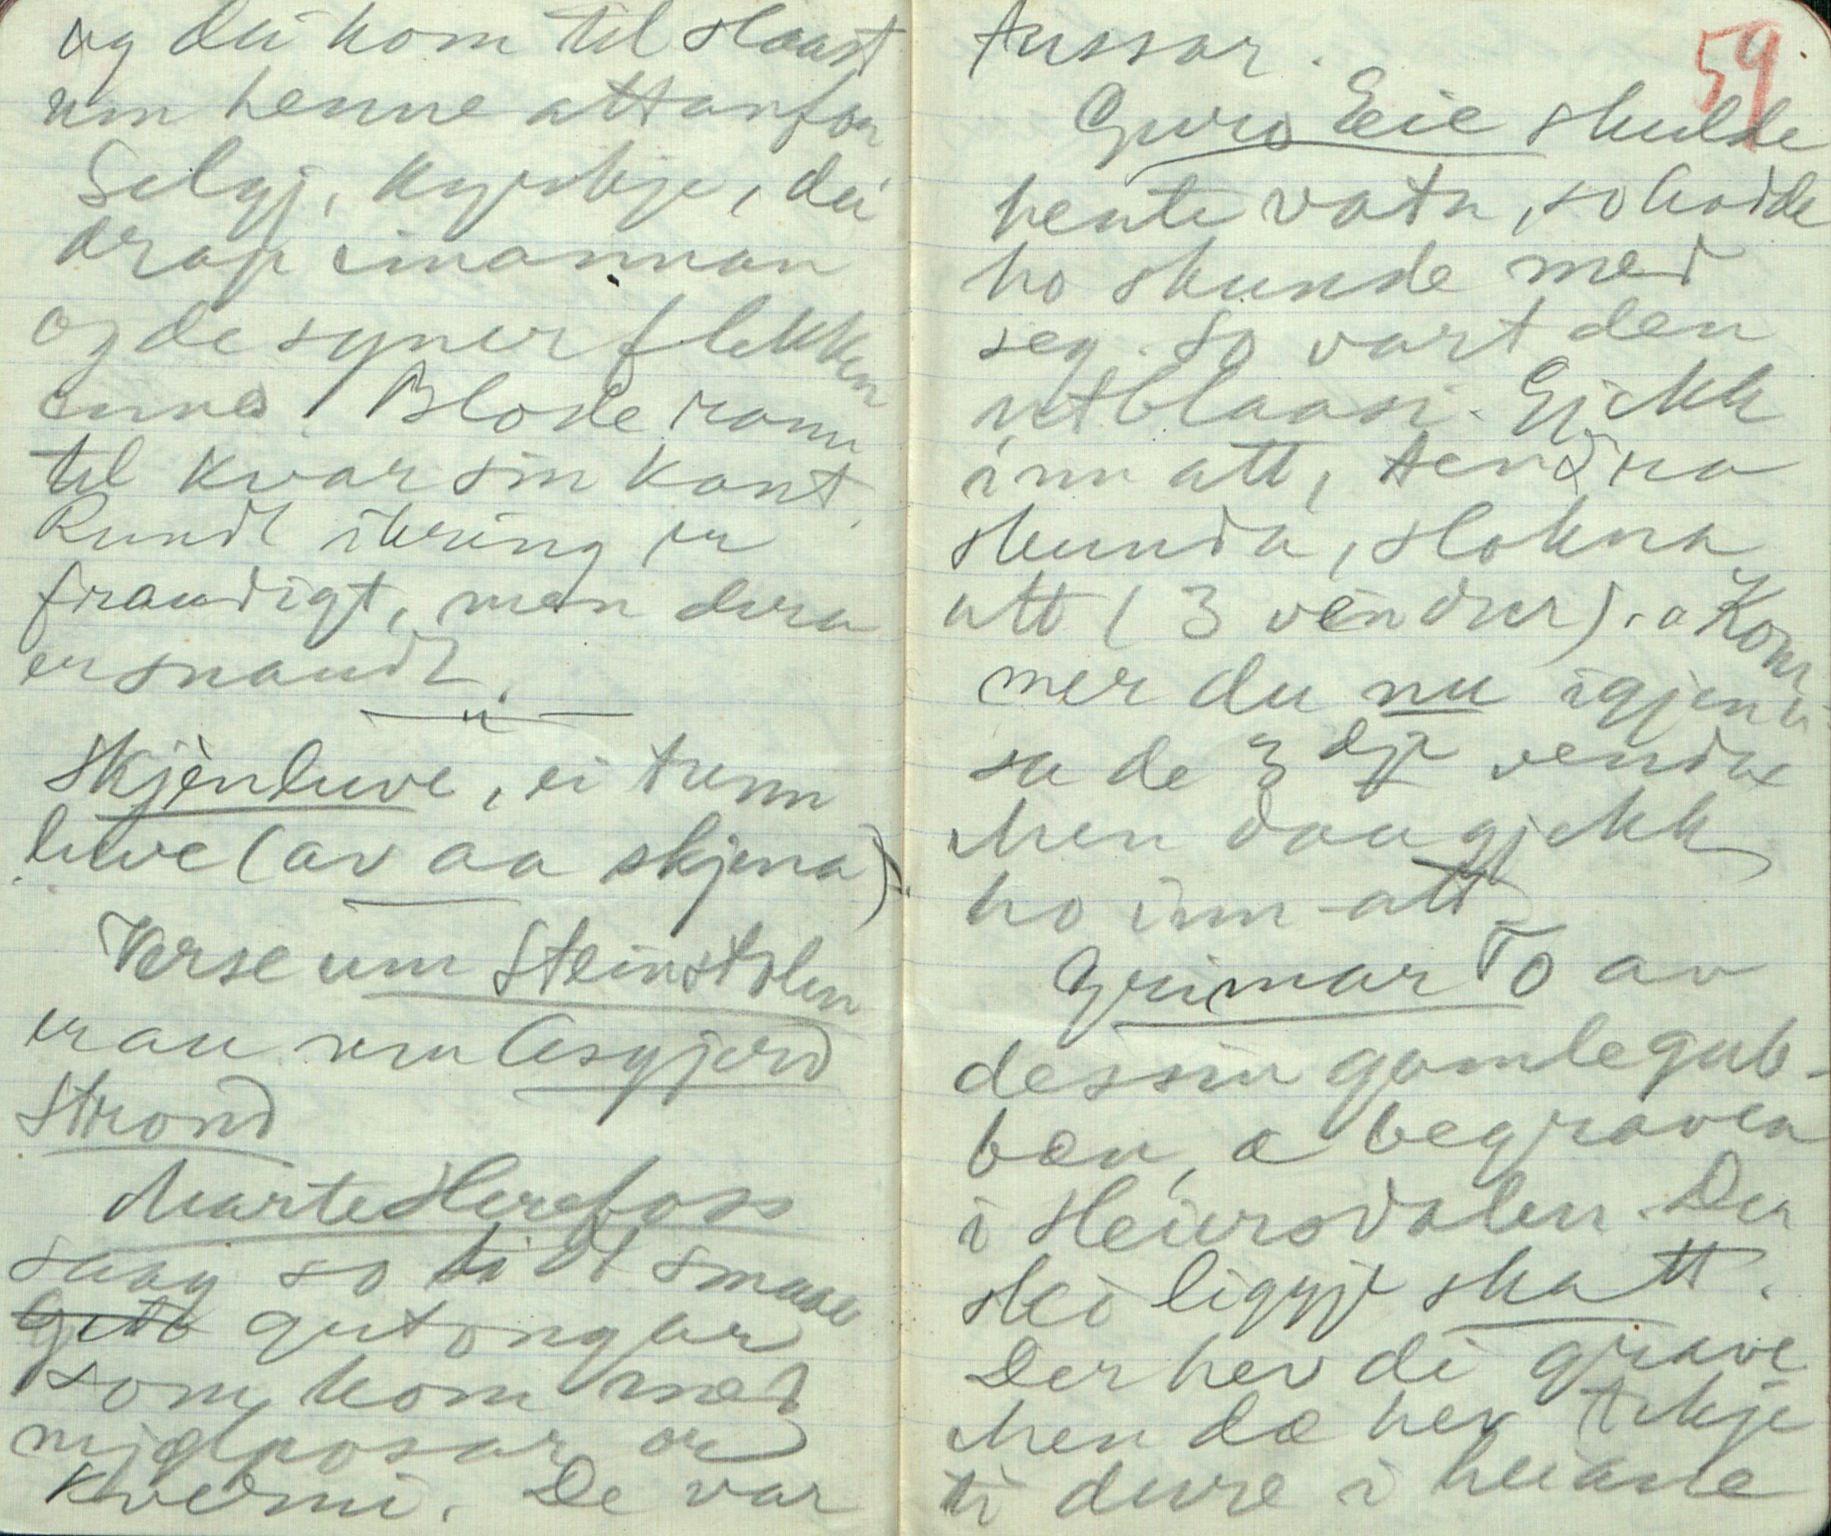 og dei kom til slaast
um henne attanfor
Selgj. kyrkje, dei
drap einannan
og de syner flekken
enno. Blode rann
til kvar sin kant.
Rundt ikring er
fraudigt, men dera
er snaudt.
Skjènluve, ei tunn
luve (av aa skjena).
Verse um Steinstolen
er au um Åsgjerd
Strond
Marte Herefoss
saag so tidt smaae
gutongar
som kom med
mjølposar or
kverni. De var
tussar.
59
Guro Eie skulde
hente vatn, so hadde
ho skunde med
seg. So vart den
utblaasi. Gjekk
inn att, tendra
skunda, slokna
att (3 vendur). "Kom
mer du nu igjen"
sa de 3dje venda
Men daa gjekk
ho inn att
Grimar To av
dessin gamle gub-
ben, æ begraven
i Heiersdalen. Der
ska liggje skatt.
Der hev di grave
Men dæ hev tikje
ti dure i heiane